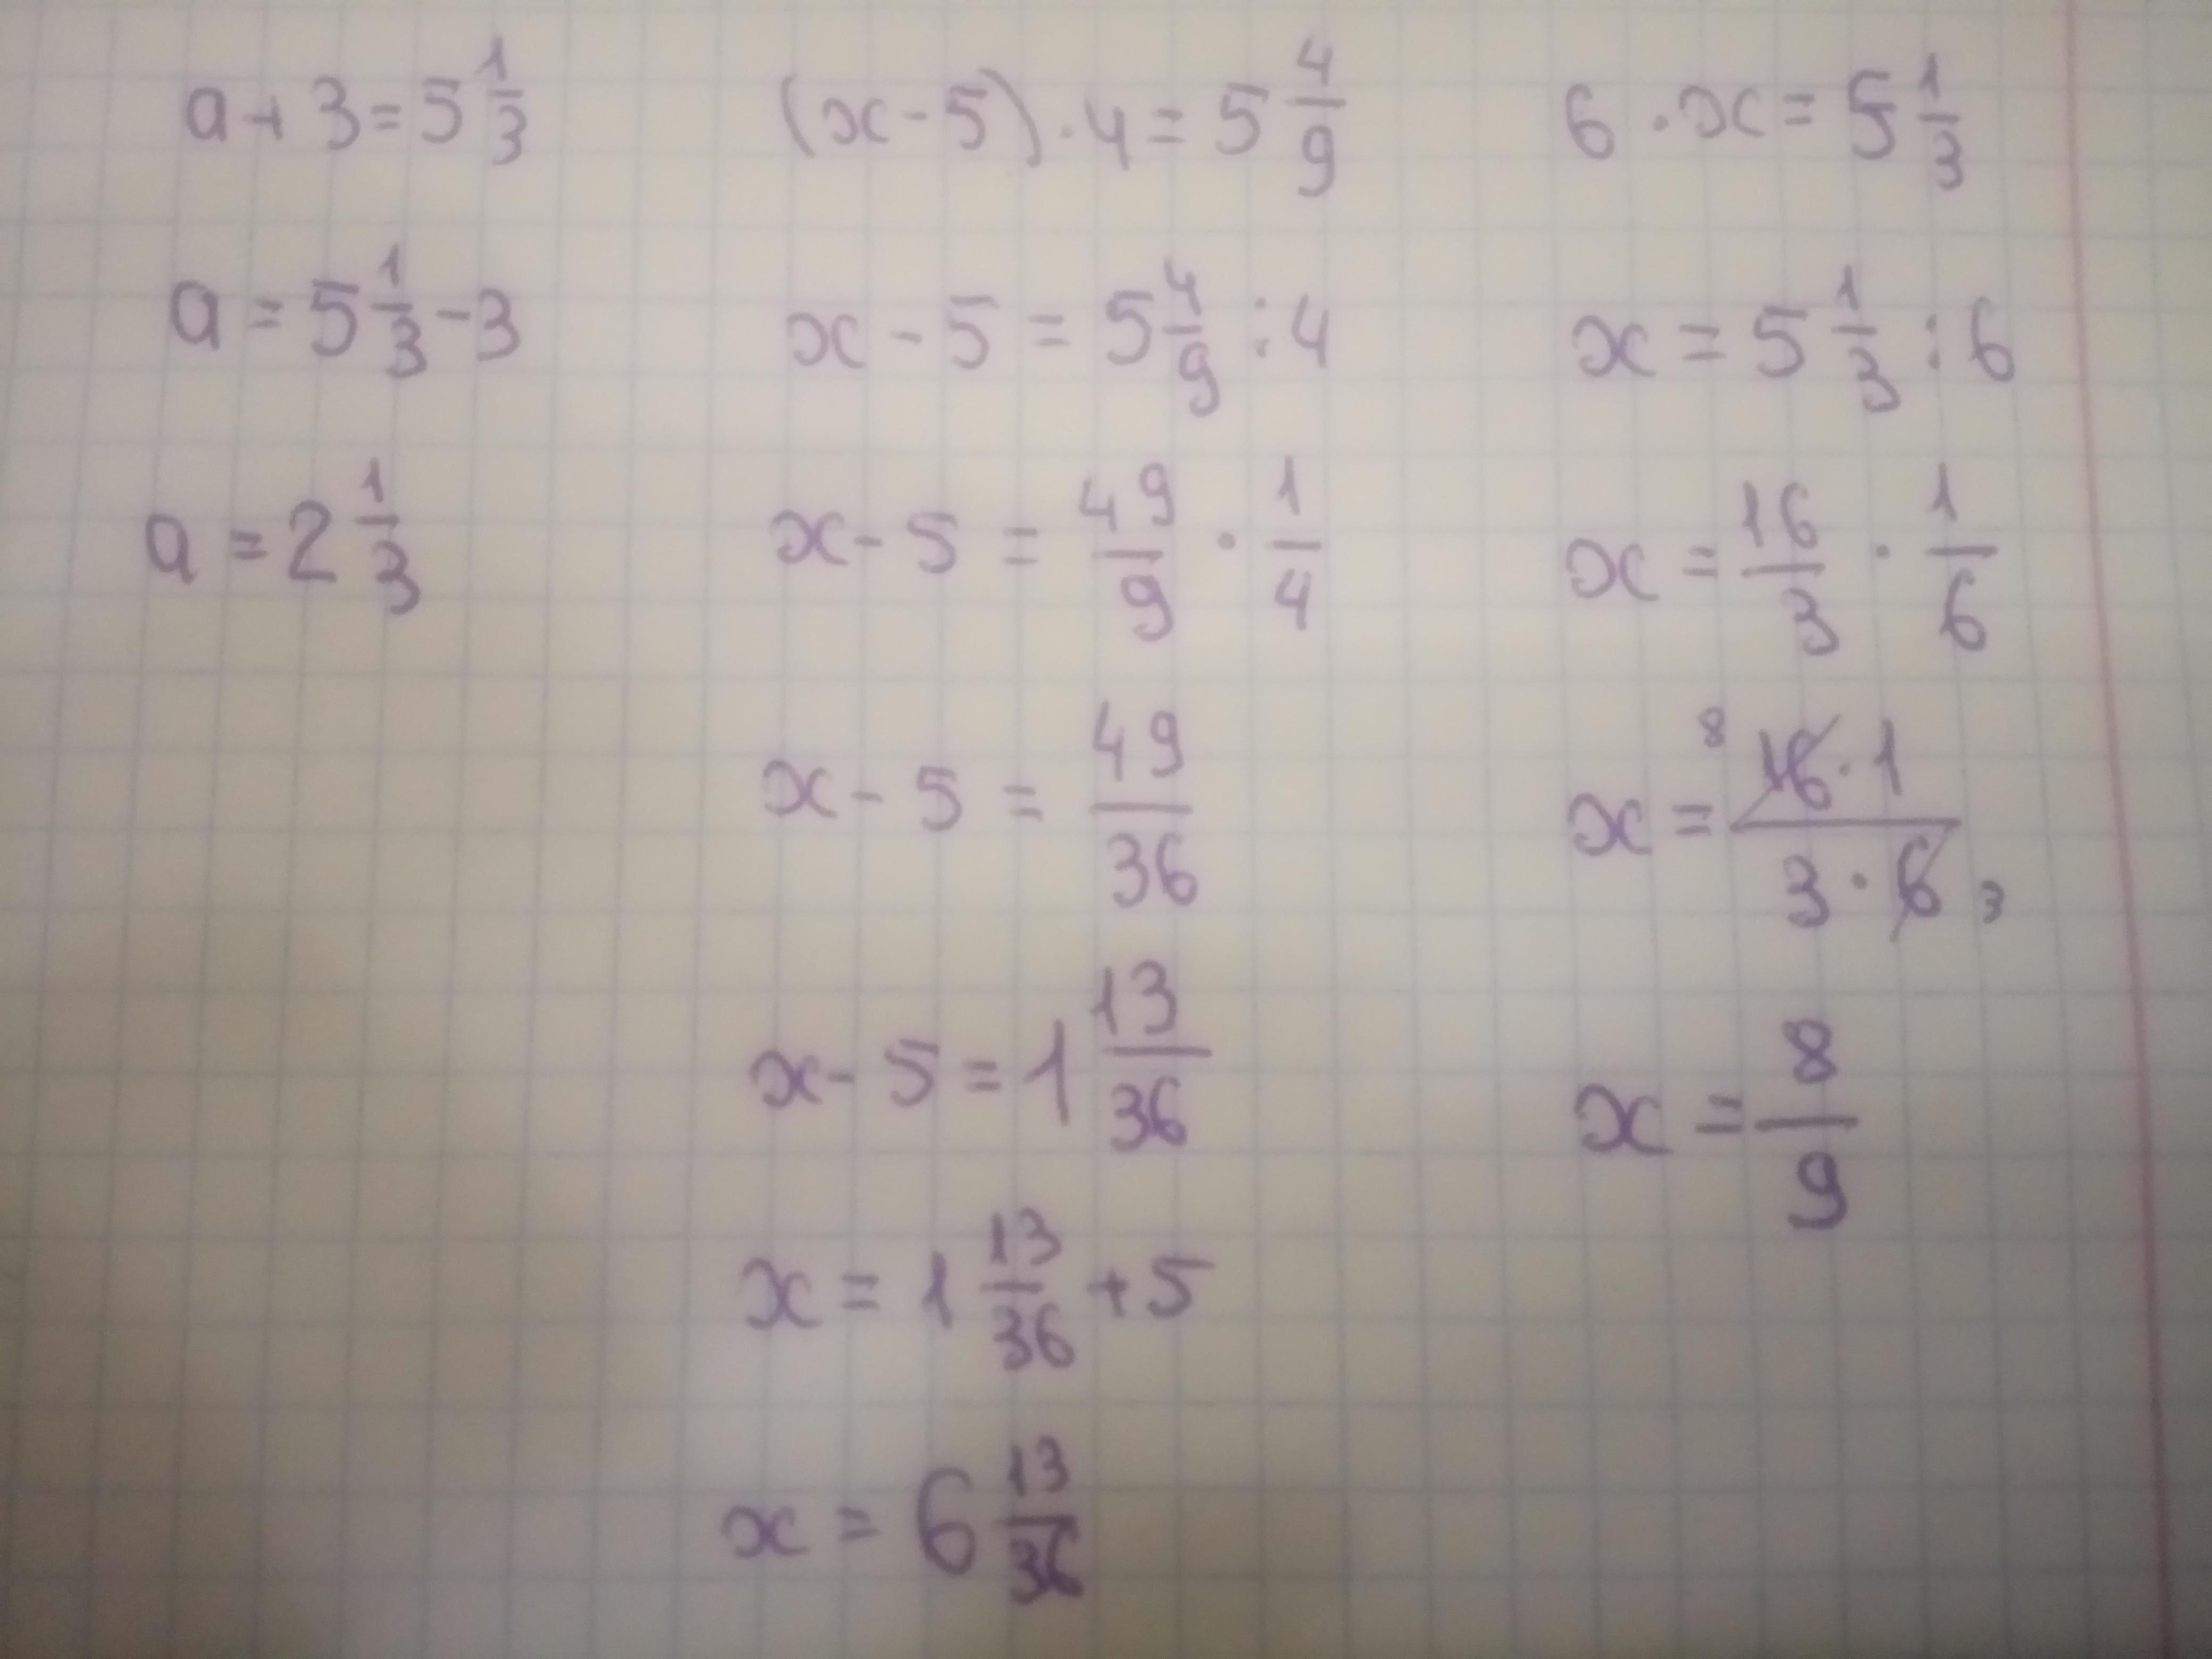 a + 3 = 5 1/3
a = 5 1/3 - 3
a = 2 1/3
(x - 5) · 4 = 5 4/9
x - 5 = 5 4/9 : 4
x - 5 = 49/9 · 1/4
x - 5 = 49/36
x - 5 = 1 13/36
x = 1 13/36 + 5
x = 6 13/36
6 · x = 5 1/3
x = 5 1/3 : 6
x = 16/3 · 1/6
8
x = 16 · 1 / 3 · 6 3
x = 8/9